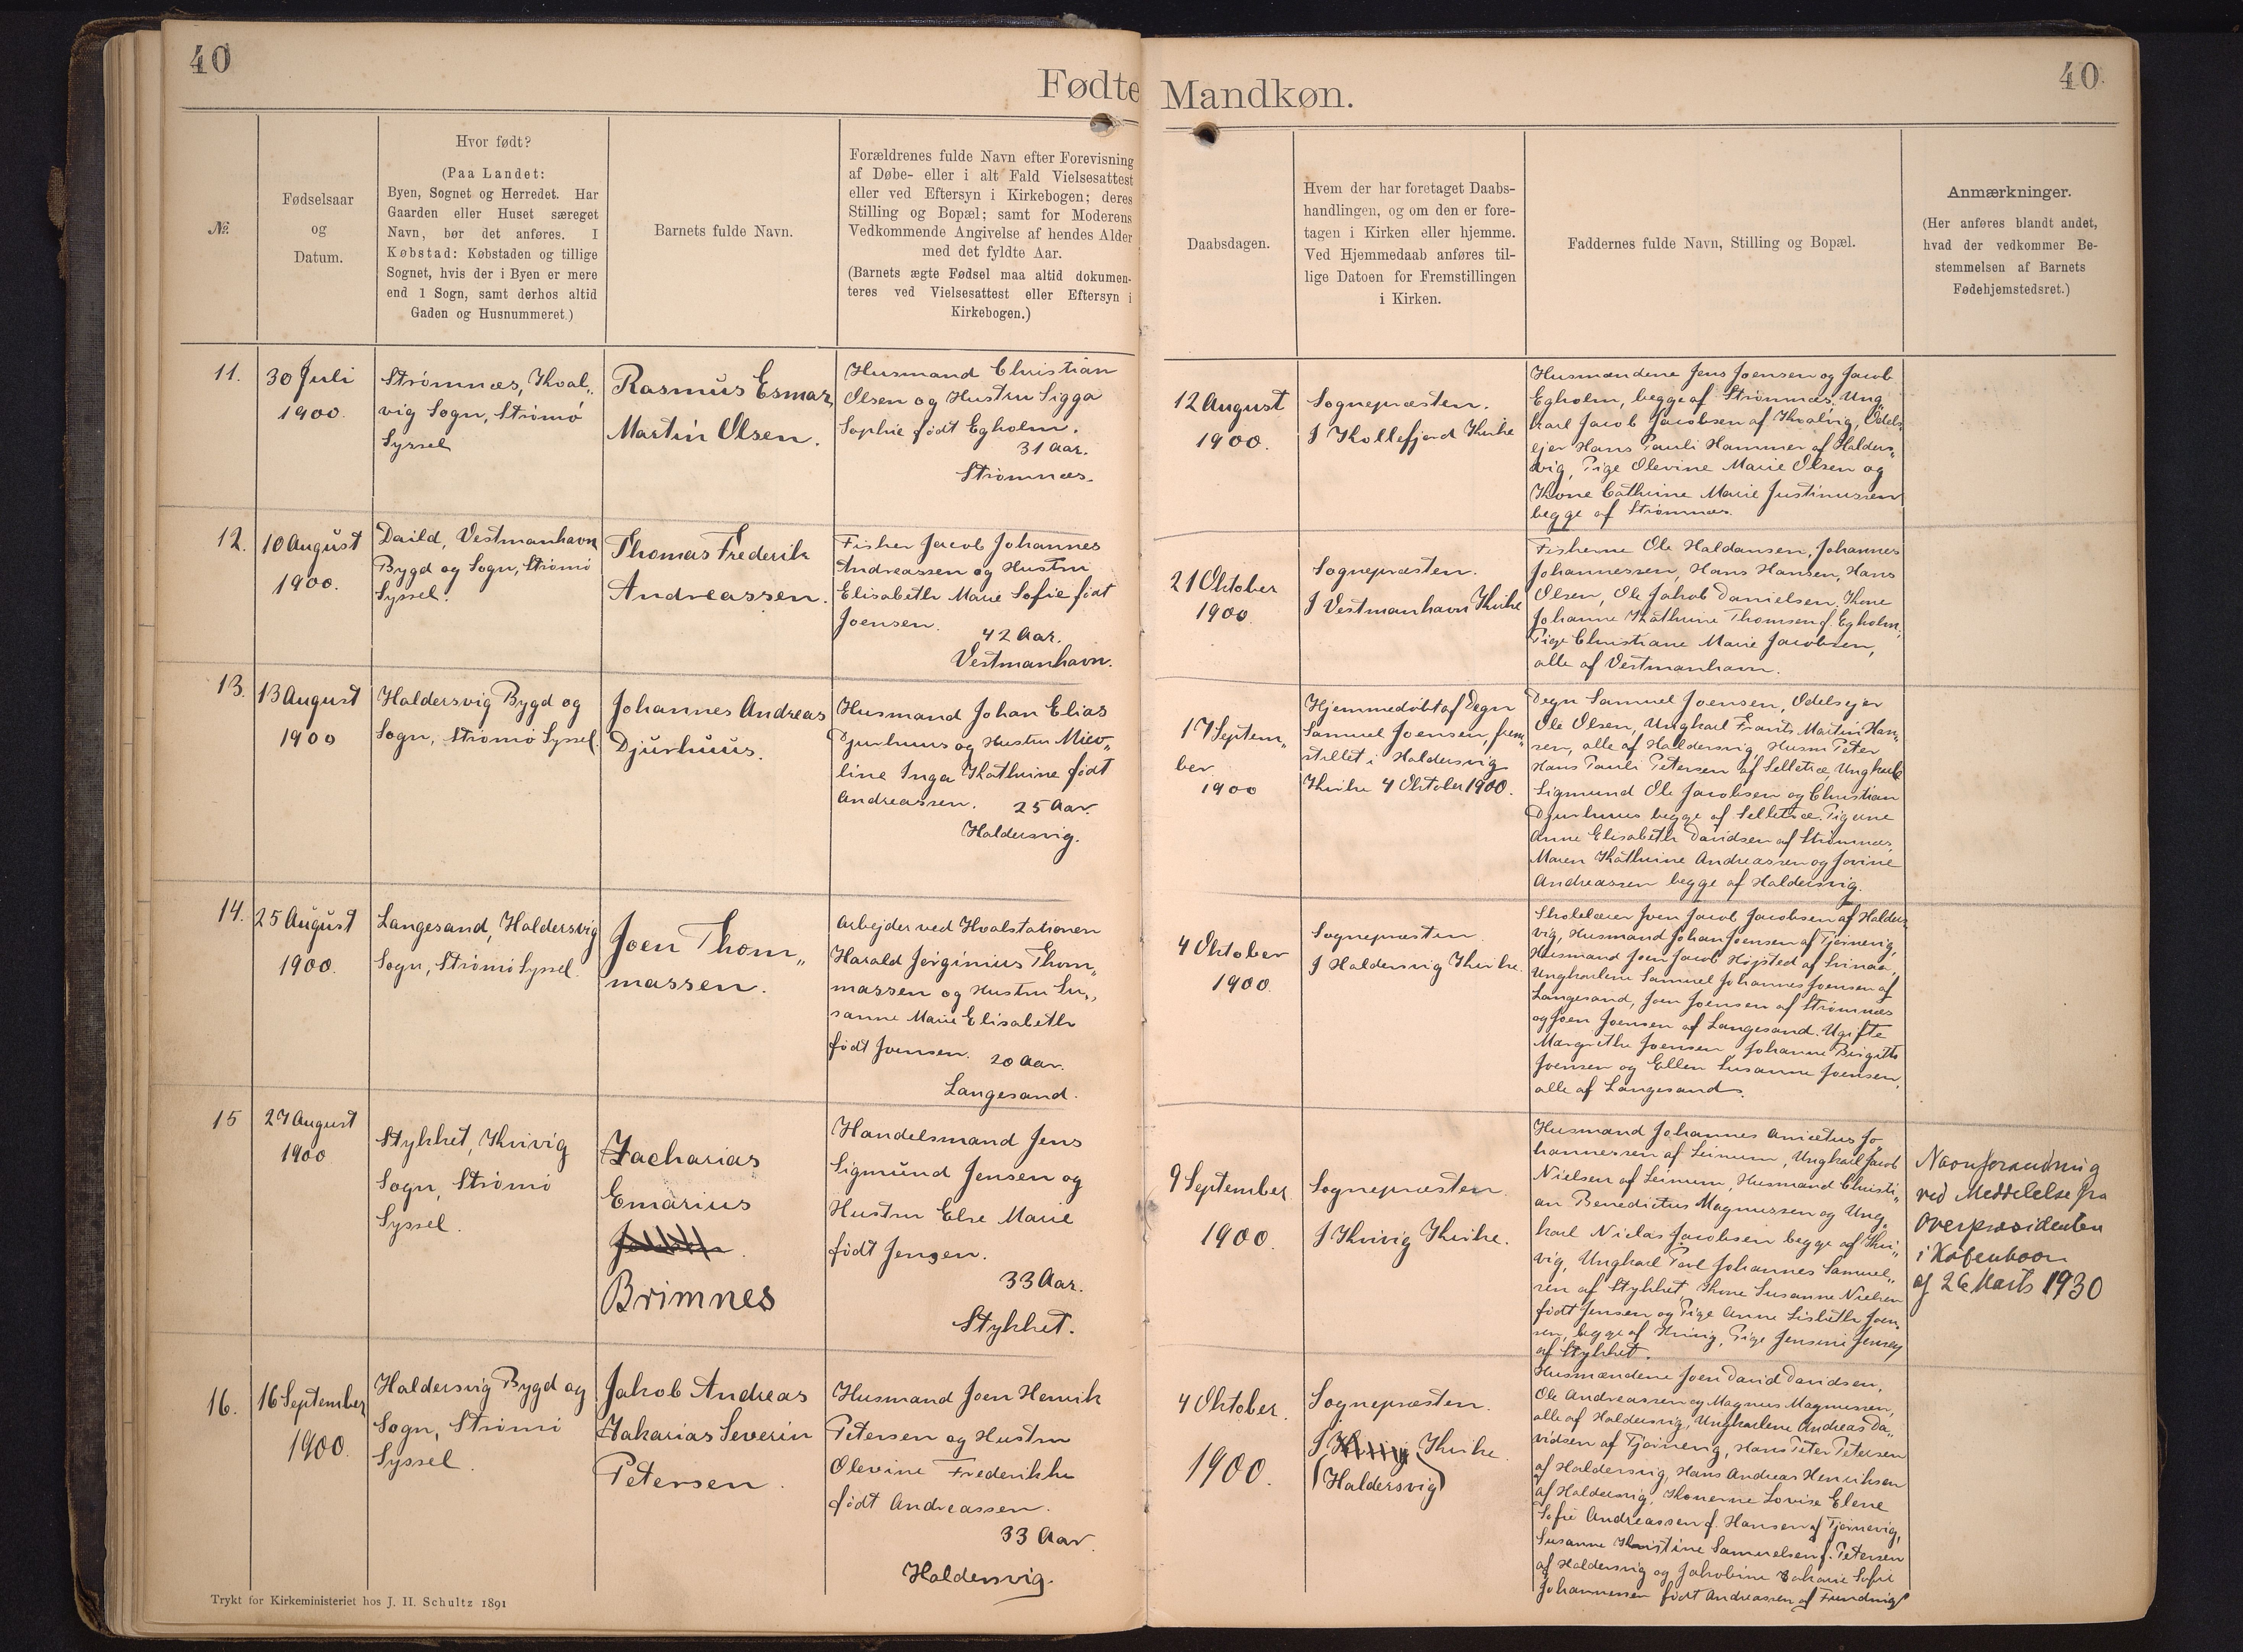 40
Fødte
Mandkøn.
40
№
Fødselsaar
og
Datum.
Hvor født?
(Paa Landet:
Byen, Sognet og Herredet. Har
Gaarden eller Huset særeget
Navn, bør det anføres. I
Købstad: Købstaden og tillige
Sognet, hvis der i Byen er mere
end 1 Sogn, samt derhos altid
Gaden og Husnummeret.)
Barnets fulde Navn.
Forældrenes fulde Navn efter Forevisning
af Døbe- eller i alt Fald Vielsesattest
eller ved Eftersyn i Kirkebogen; deres
Stilling og Bopæl; samt for Moderens
Vedkommende Angivelse af hendes Alder
med det fyldte Aar.
(Barnets ægte Fødsel maa altid dokumen-
teres ved Vielsesattest eller Eftersyn i
Kirkebogen.)
Daabsdagen.
Hvem der har foretaget Daabs-
handlingen, og om den er fore-
tagen i Kirken eller hjemme.
Ved Hjemmedaab anføres til-
lige Datoen for Fremstillingen
i Kirken.
Faddernes fulde Navn, Stilling og Bopæl.
Anmærkninger.
(Her anføres blandt andet,
hvad der vedkommer Be-
stemmelsen af Barnets
Fødehjemstedsret.)
11.
30 Juli
1900.
Strømnæs, Kval„
vig Sogn, Strømø
Syssel
Rasmus Esmar
Martin Olsen.
Husmand Christian
Olsen og Hustru Sigga
Sophie født Egholm.
31 Aar.
Strømnæs.
12 August
1900.
Sognepræsten.
I Kollefjord Kirke
Husmændene Jens Joensen og Jacob
Egholm, begge af Strømnæs, Ung„
karl Jacob Jacobsen af Kvalvig, Odels
ejer Hans Pauli Hammer af Halders„
vig, Pige Olevine Marie Olsen og
Kone Cathrine Marie Justinussen
begge af Strømnæs.
12.
10 August
1900.
Daild, Vestmanhavn
Bygd og Sogn, Strømø
Syssel.
Thomas Frederik
Andreassen.
Fisker Jacob Johannes
Andreassen og Hustru
Elisabeth Marie Sofie født
Joensen. 42 Aar.
Vestmanhavn.
21 Oktober
1900.
Sognepræsten.
I Vestmanhavn Kirke
Fiskerne Ole Haldansen, Johannes
Johannessen, Hans Hansen, Hans
Olsen, Ole Jakob Danielsen. Kone
Johanne Kathrine Thomsen f. Egholm,
Pige Christiane Marie Jacobsen,
alle af Vestmanhavn.
13.
13 August
1900
Haldersvig Bygd og
Sogn, Strømø Syssel.
Johannes Andreas
Djurhuus.
Husmand Johan Elias
Djurhuus og Hustru Nico„
line Inga Kathrine født
Andreassen. 25 Aar.
Haldersvig.
17 Septem„
ber
1900
Hjemmedøbt af Degn
Samuel Joensen, frem„
stillet i Haldersvig
Kirke 4 Oktober 1900.
Degn Samuel Joensen, Odelsejer
Ole Olsen, Ungkarl Frants Martin Han„
sen, alle af Haldersvig, Husm. Peter
Hans Pauli Petersen af Selletræ, Ungkarle
Sigmund Ole Jacobsen og Christian
Djurhuus begge af Selletræ. Pigerne
Anne Elisabeth Davidsen af Strømnæs,
Maren Kathrine Andreassen og Jovine
Andreassen begge af Haldersvig.
14.
25 August
1900.
Langesand, Haldersvig
Sogn, Strømø Syssel.
Joen Thom„
massen.
Arbejder ved Hvalstationen
Harald Jørginius Thom„
massen og Hustru Su„
sanne Marie Elisabeth
født Joensen. 20 Aar.
Langesand.
4 Oktober
1900.
Sognepræsten
I Haldersvig Kirke.
Skolelærer Joen Jacob Jacobsen af Halders
vig, Husmand Johan Joensen af Tjørnevig,
Husmand Joen Jacob Højsted af Svinaa,
Ungkarlene Samuel Johannes Joensen af
Langesand, Joen Joensen af Strømnæs
og Joen Joensen af Langesand. Ugifte
Margrethe Joensen, Johanne Birgitte
Joensen og Ellen Susanne Joensen,
alle af Langesand.
15
27 August
1900
Stykket, Kvivig
Sogn, Strømø
Syssel.
Zacharias
Emarius
Brimnes
Handelsmand Jens
Sigmund Jensen og
Hustru Else Marie
født Jensen.
33 Aar.
Stykket.
9 September
1900.
Sognepræsten.
I Kvivig Kirke.
Husmand Johannes Anicetus Jo
hannessen af Leinum, Ungkarl Jacob
Nielsen af Leinum, Husmand Christi„
an Benedictus Magnussen og Ung„
karl Niclas Jacobsen begge af Kvi„
vig, Ungkarl Poul Johannes Samuel„
sen af Stykket, Kone Susanne Nielsen
født Jensen og Pige Anne Lisbeth Joen„
sen, begge af Kvivig, Pige Jensine Jensen
af Stykket.
Navneforandring
ved Meddelelse fra
Overpræsidenten
i København
af 26 Marts 1930
16.
16 September
1900.
Haldersvig Bygd og
Sogn, Strømø
Syssel.
Jakob Andreas
Zakarias Severin
Petersen.
Husmand Joen Henrik
Petersen og Hustru
Olevine Frederikke
født Andreassen.
33 Aar.
Haldersvig.
4 Oktober.
1900.
Sognepræsten.
I Kvivig Kirke.
(Haldersvig)
Husmændene Joen David Davidsen,
Ole Andreassen og Magnus Magnussen,
alle af Haldersvig, Ungkarlene Andreas Da„
vidsen af Tjørnevig, Hans Peter Petersen
af Haldersvig, Hans Andreas Henriksen
af Haldersvig. Konerne Lovise Elene
Sofie Andreassen f. Hansen af Tjørnevig,
Susanne Kristine Samuelsen f. Petersen
af Haldersvig og Jakobine Zakarie Sofie
Johannessen født Andreassen af
Trykt for Kirkeministeriet hos J. H. Schultz 1891